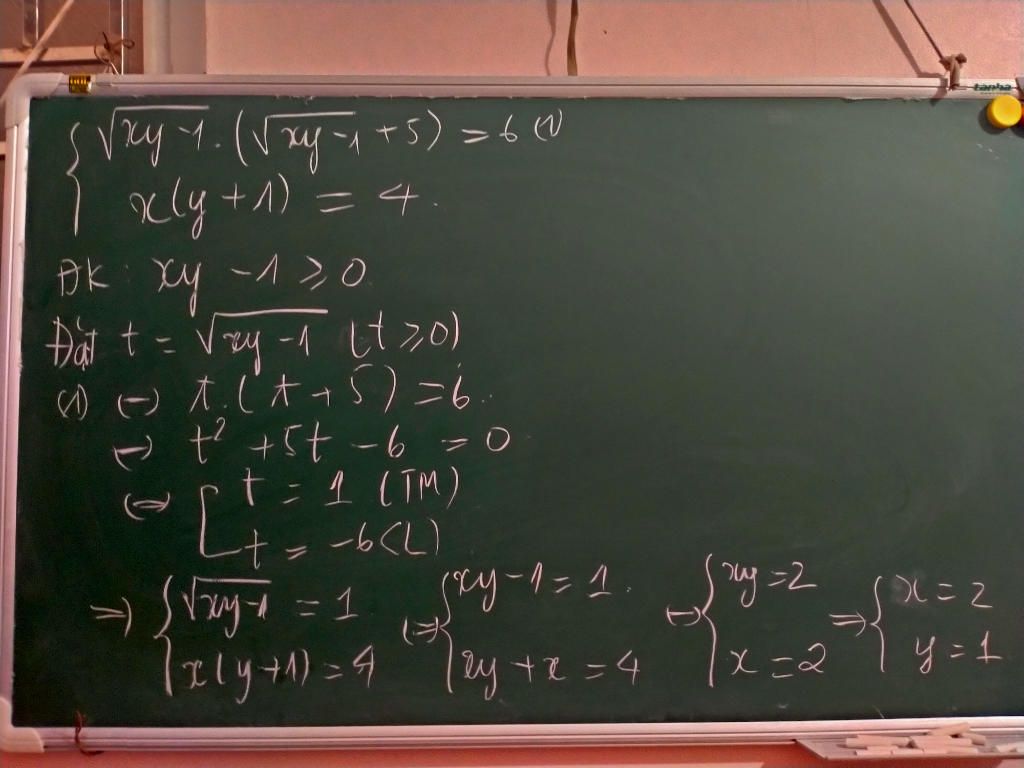 { √(xy-1).(√(xy-1)+5) = 6 (1)
x(y+1) = 4.
ĐK: xy -1 ≥ 0
Đặt t = √(xy-1) (t ≥ 0)
(1) (=) t.(t+5) = 6
(=) t² + 5t - 6 = 0
(=) [ t = 1 (TM)
t = -6 (L)
=) { √(xy-1) = 1 (=) { xy-1 = 1. (=) { xy = 2 =) { x = 2
x(y+1) = 4 xy + x = 4 x = 2 y = 1
tanha